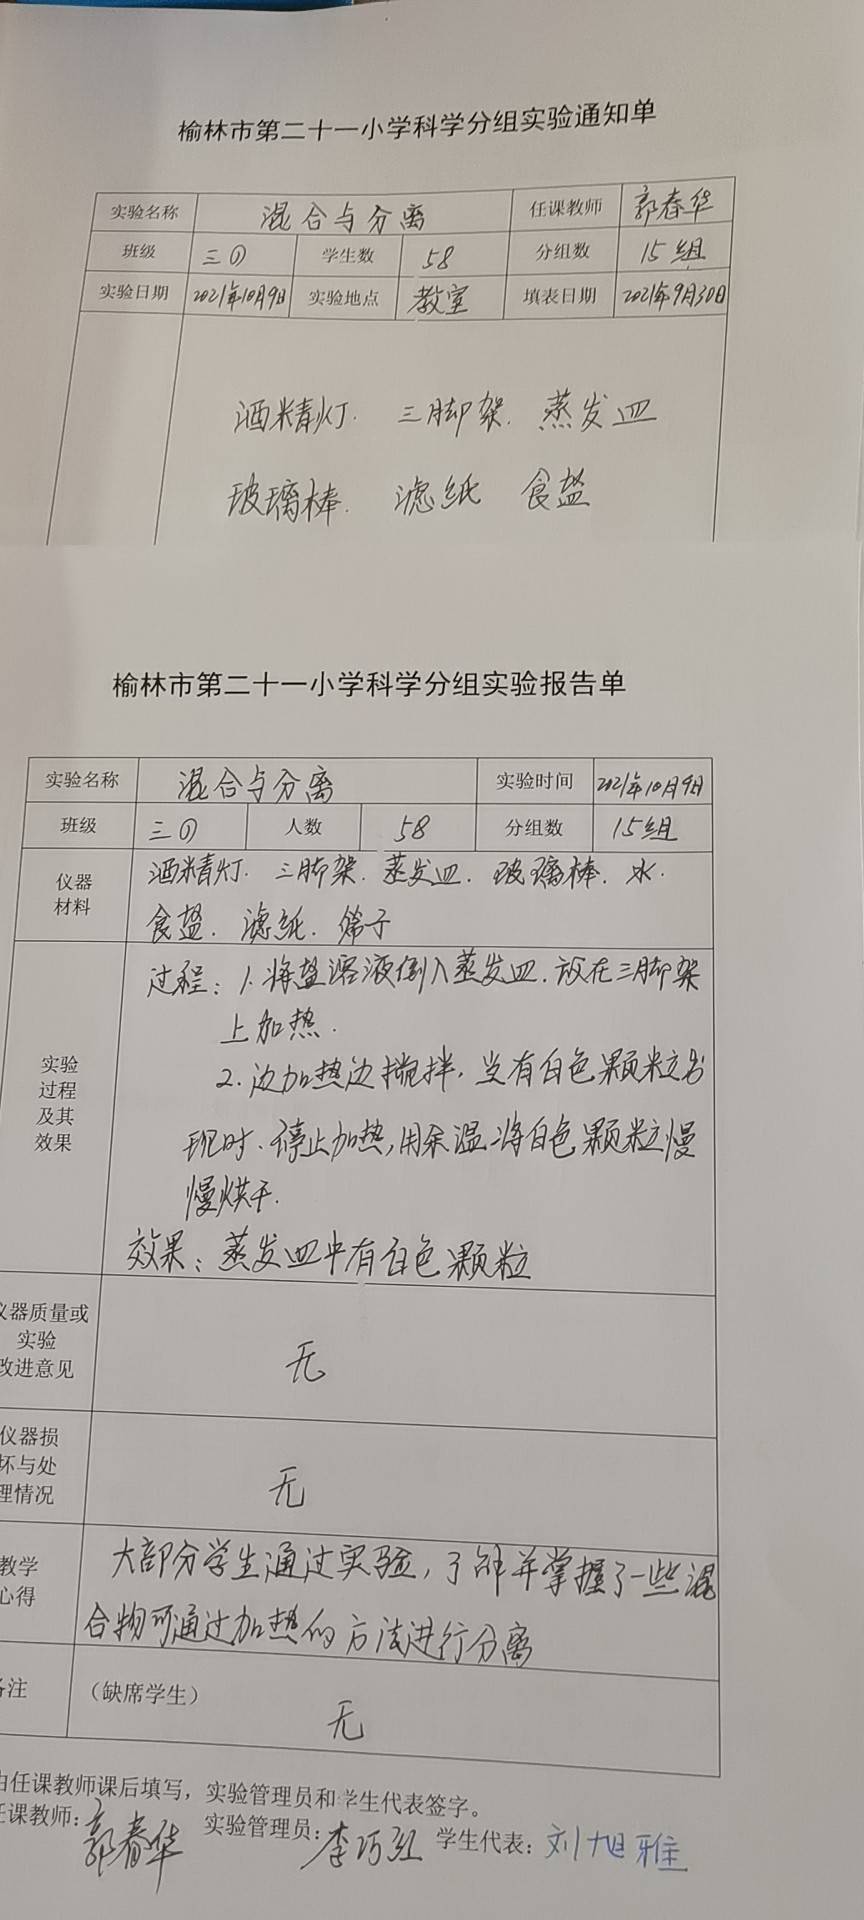 榆林市第二十一小学科学分组实验通知单
实验名称 混合与分离 任课教师 郭春华
班级 三① 学生数 58 分组数 15组
实验日期 2021年10月9日 实验地点 教室 填表日期 2021年9月30日
酒精灯. 三脚架. 蒸发皿
玻璃棒. 滤纸 食盐
榆林市第二十一小学科学分组实验报告单
实验名称 混合与分离 实验时间 2021年10月9日
班级 三① 人数 58 分组数 15组
仪器
材料
酒精灯. 三脚架. 蒸发皿. 玻璃棒. 水.
食盐. 滤纸. 筛子
实验
过程
及其
效果
过程: 1.将盐溶液倒入蒸发皿.放在三脚架
上加热.
2.边加热边搅拌,当有白色颗粒出
现时.停止加热,用余温将白色颗粒慢
慢烘干.
效果: 蒸发皿中有白色颗粒
仪器质量或
实验
改进意见
无
仪器损
坏与处
理情况
无
教学
心得
大部分学生通过实验,了解并掌握了一些混
合物可通过加热的方法进行分离
备注 (缺席学生)
无
由任课教师课后填写,实验管理员和学生代表签字。
任课教师: 郭春华 实验管理员: 李巧红 学生代表: 刘旭雅